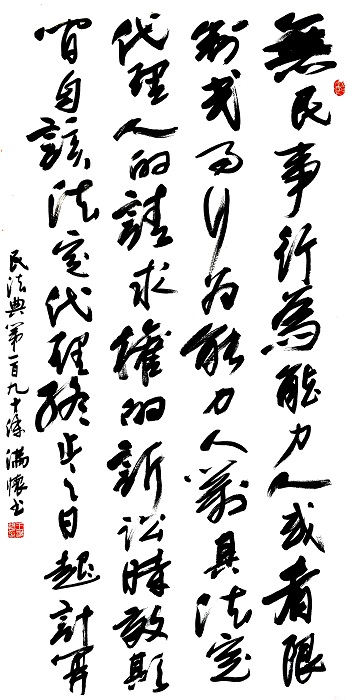 無民事行為能力人或者限
制民事行为能力人對其法定
代理人的請求權的訴訟時效期
間自該法定代理終止之日起計算
民法典第一百九十條 滿懷书